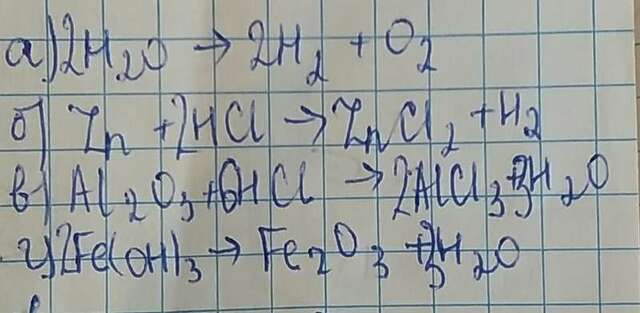 а) 2H₂O → 2H₂ + O₂
б) Zn + 2HCl → ZnCl₂ + H₂
в) Al₂O₃ + 6HCl → 2AlCl₃ + 3H₂O
г) 2Fe(OH)₃ → Fe₂O₃ + 3H₂O